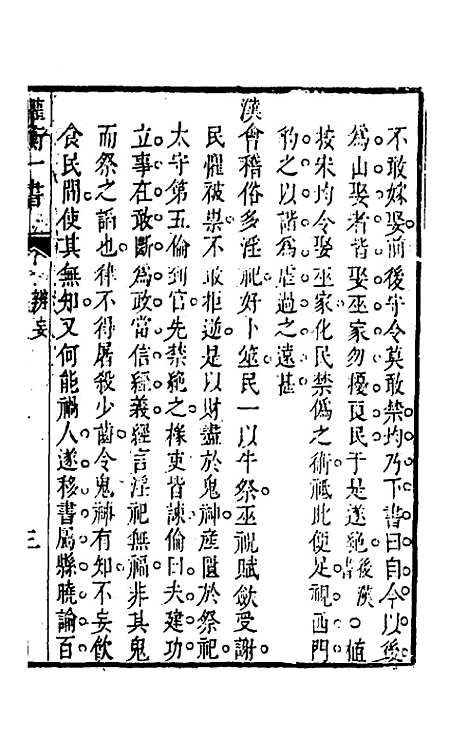 不敢嫁娶前後守令莫敢禁均乃下書曰自今以後
為山娶者皆娶巫家勿擾良民于是遂絶後漢書○植
按宋均令娶巫家化民禁偽之術祗此便足視西門
豹之以謔為虐過之遠甚
漢會稽俗多淫祀好卜筮民一以牛祭巫祝賦斂受謝
民懼被祟不敢拒逆是以財盡於鬼神産匱於祭祀
太守第五倫到官先禁絶之掾吏皆諫倫曰夫建功
立事在敢斷為政當信經義經言淫祀無福非其鬼
而祭之諂也律不得屠殺少齒令鬼神有知不妄飲
食民間使其無知又何能禍人遂移書屬縣曉諭百
權衡一書
辨妄
三